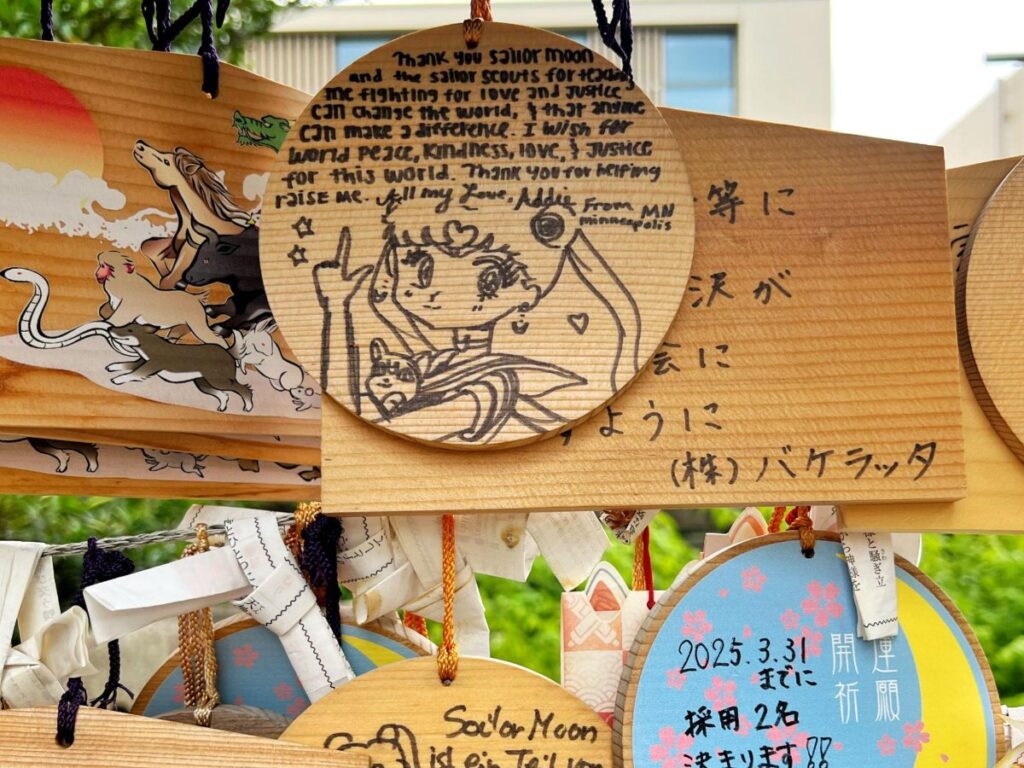 Thank you sailor moon
and the sailor scouts for teaching
me fighting for love and Justice
can change the world, & that anyone
can make a difference. I wish for
world peace, kindness, love, & Justice
for this world. Thank you for helping
raise me. All my Love, Addie From
minneapolis MN
等に
沢が
会に
ように
(株)バケラッタ
2025.3.31
までに
採用 2名
決まります!!
開運
祈願
Sailor Moon
ist ein Teil von